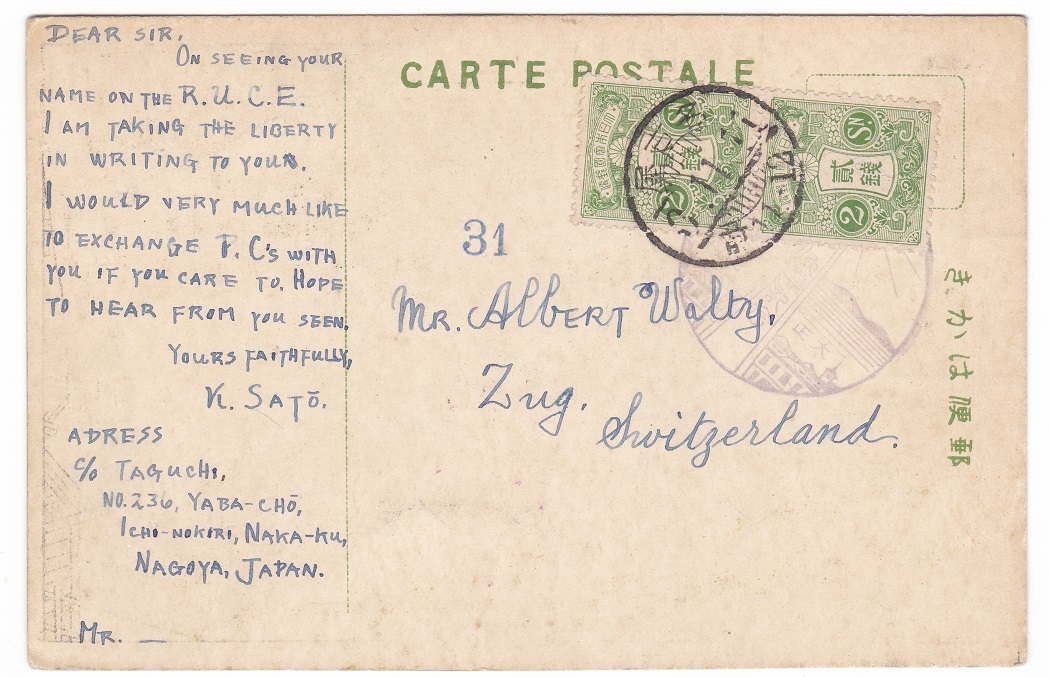 DEAR SIR,
ON SEEING YOUR
NAME ON THE R.U.C.E.
I AM TAKING THE LIBERTY
IN WRITING TO YOUR.
I WOULD VERY MUCH LIKE
TO EXCHANGE P.C's WITH
YOU IF YOU CARE TO. HOPE
TO HEAR FROM YOU SEEN.
YOURS FAITHFULLY,
K. SATŌ.
ADRESS
c/o TAGUCHI,
NO. 236, YABA-CHŌ,
ICHI-NOKIRI, NAKA-KU,
NAGOYA, JAPAN.
MR. —
CARTE POSTALE
2 SN
貳錢
2 SN
貳錢
31
MR. ALBERT Walty,
Zug.
Switzerland.
きかは便郵